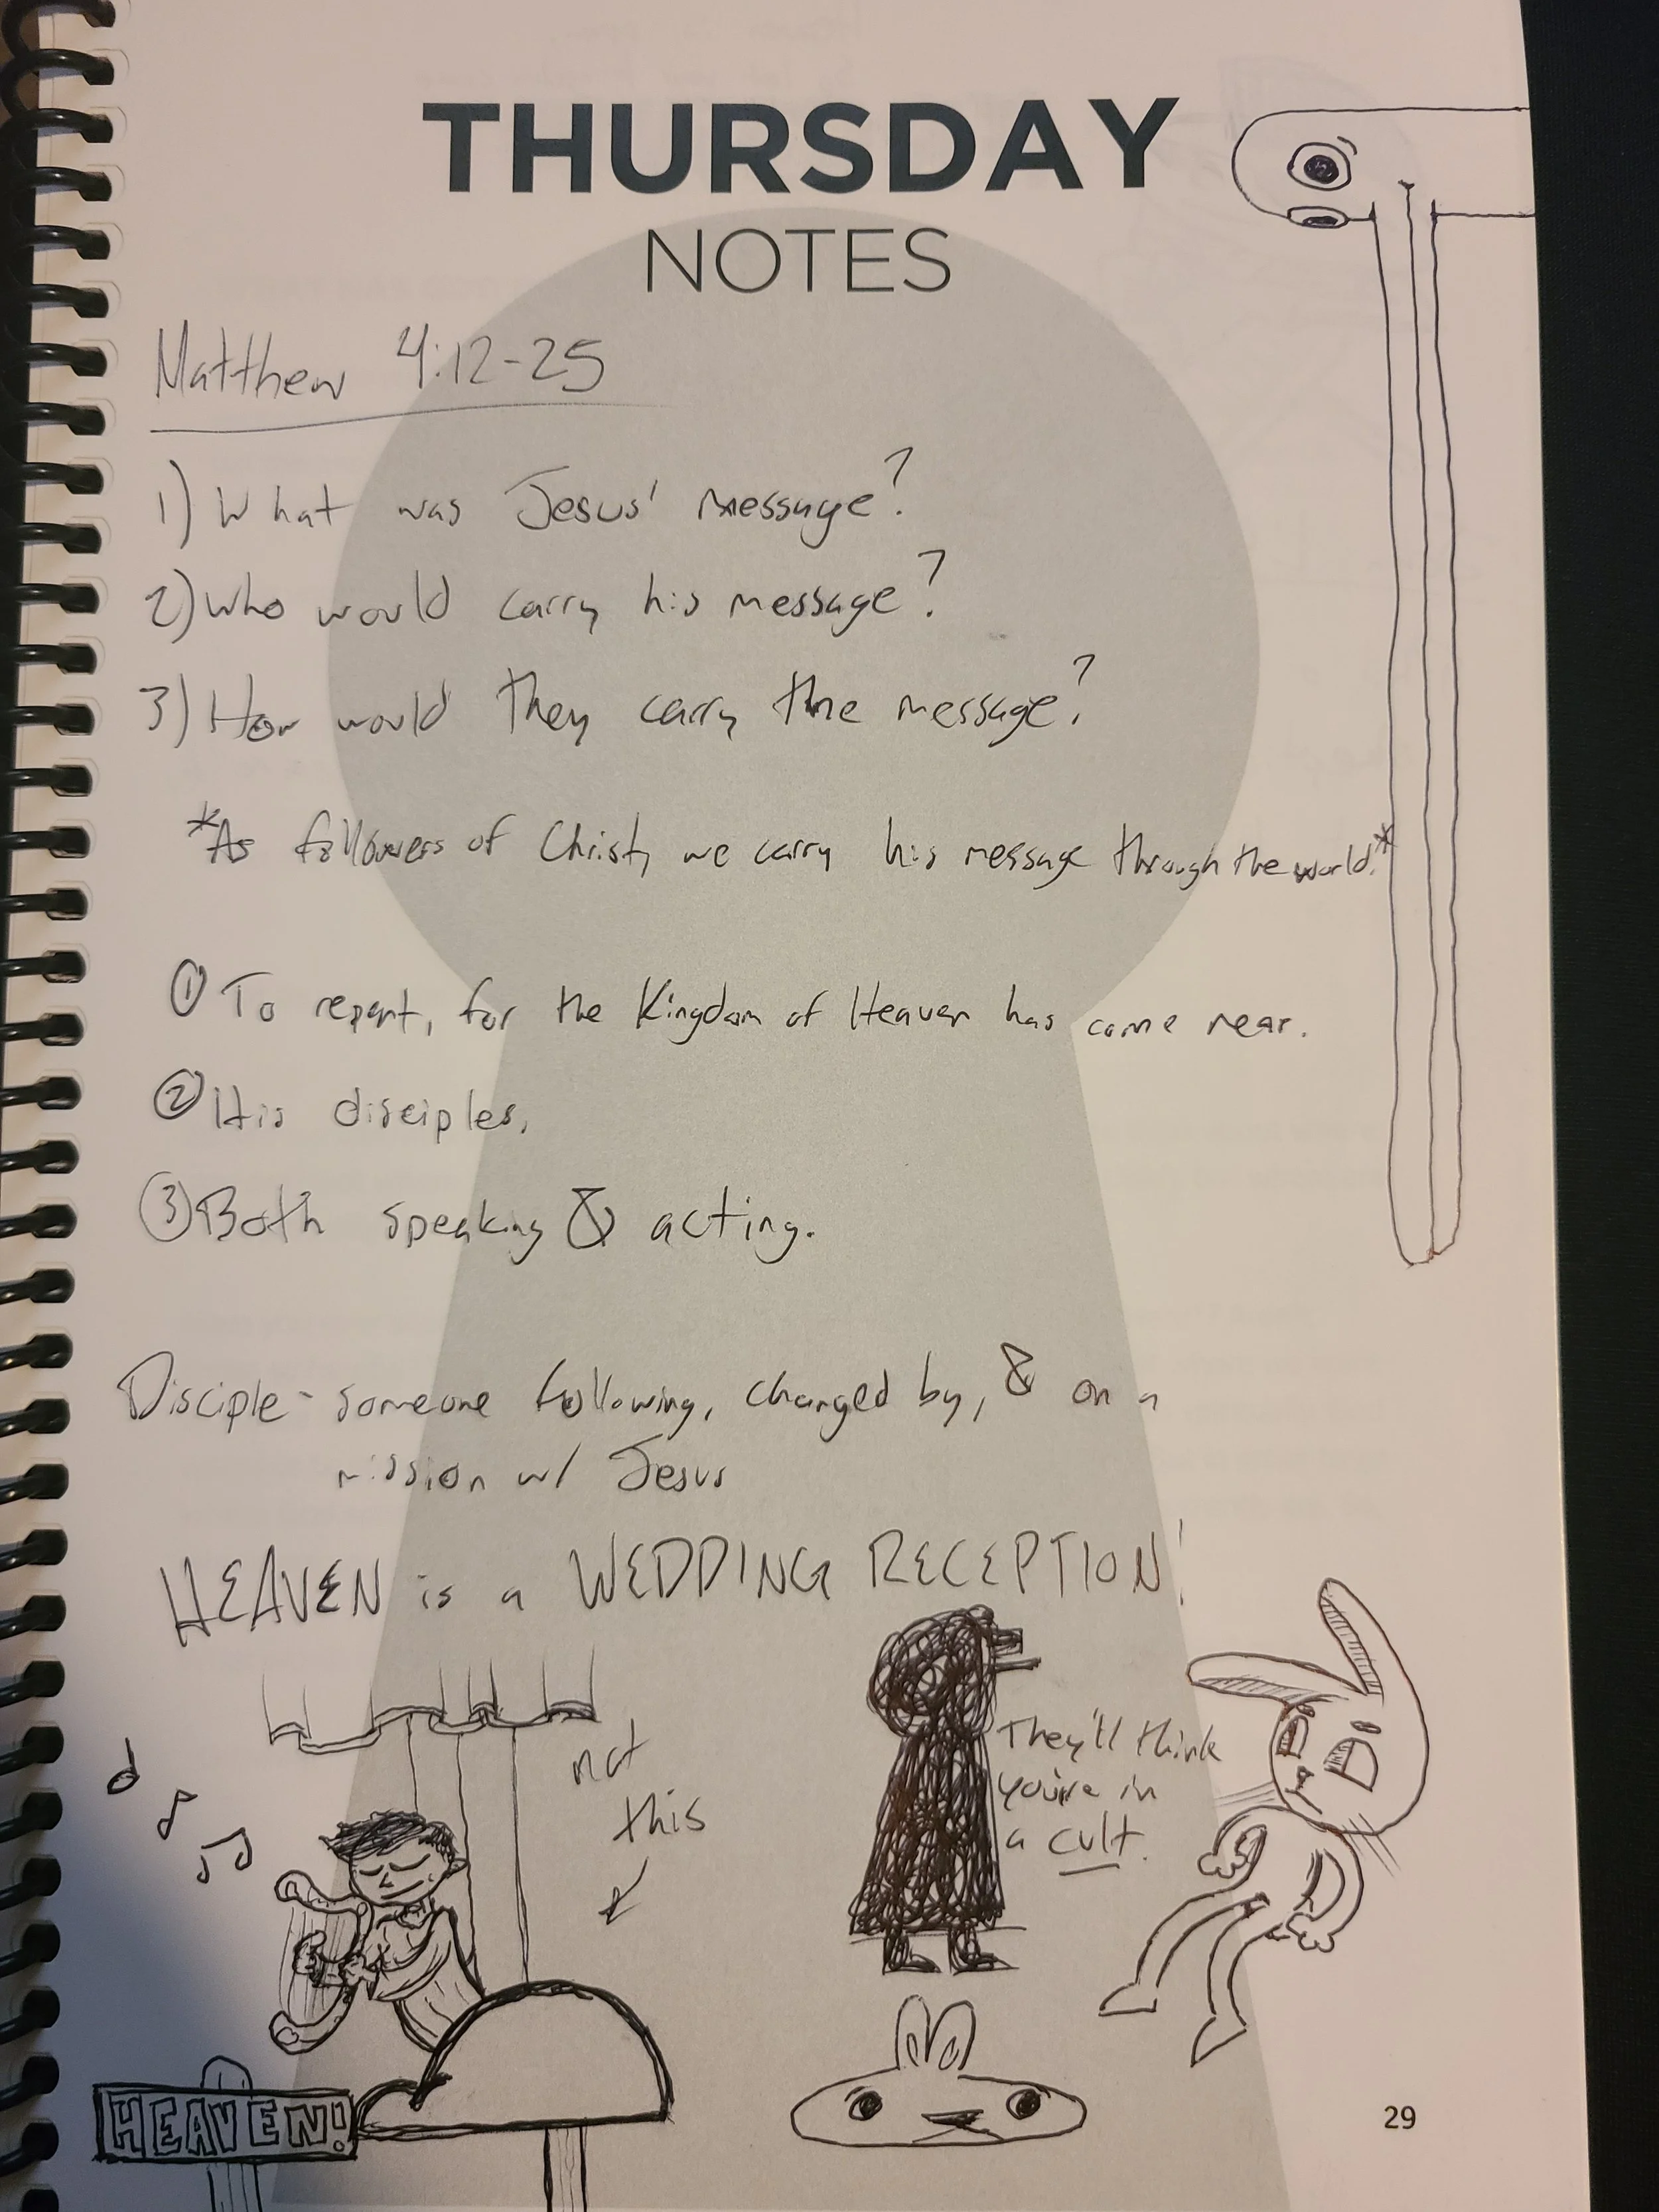 THURSDAY
NOTES
Matthew 4:12-25
1) What was Jesus' message?
2) Who would carry his message?
3) How would they carry the message?
*As followers of Christ, we carry his message through the world.*
① To repent, for the Kingdom of Heaven has come near.
② His disciples,
③ Both speaking & acting.
Disciple - someone following, changed by, & on a
mission w/ Jesus
HEAVEN is a WEDDING RECEPTION!
not
this
They'll think
you're in
a cult.
HEAVEN!
29